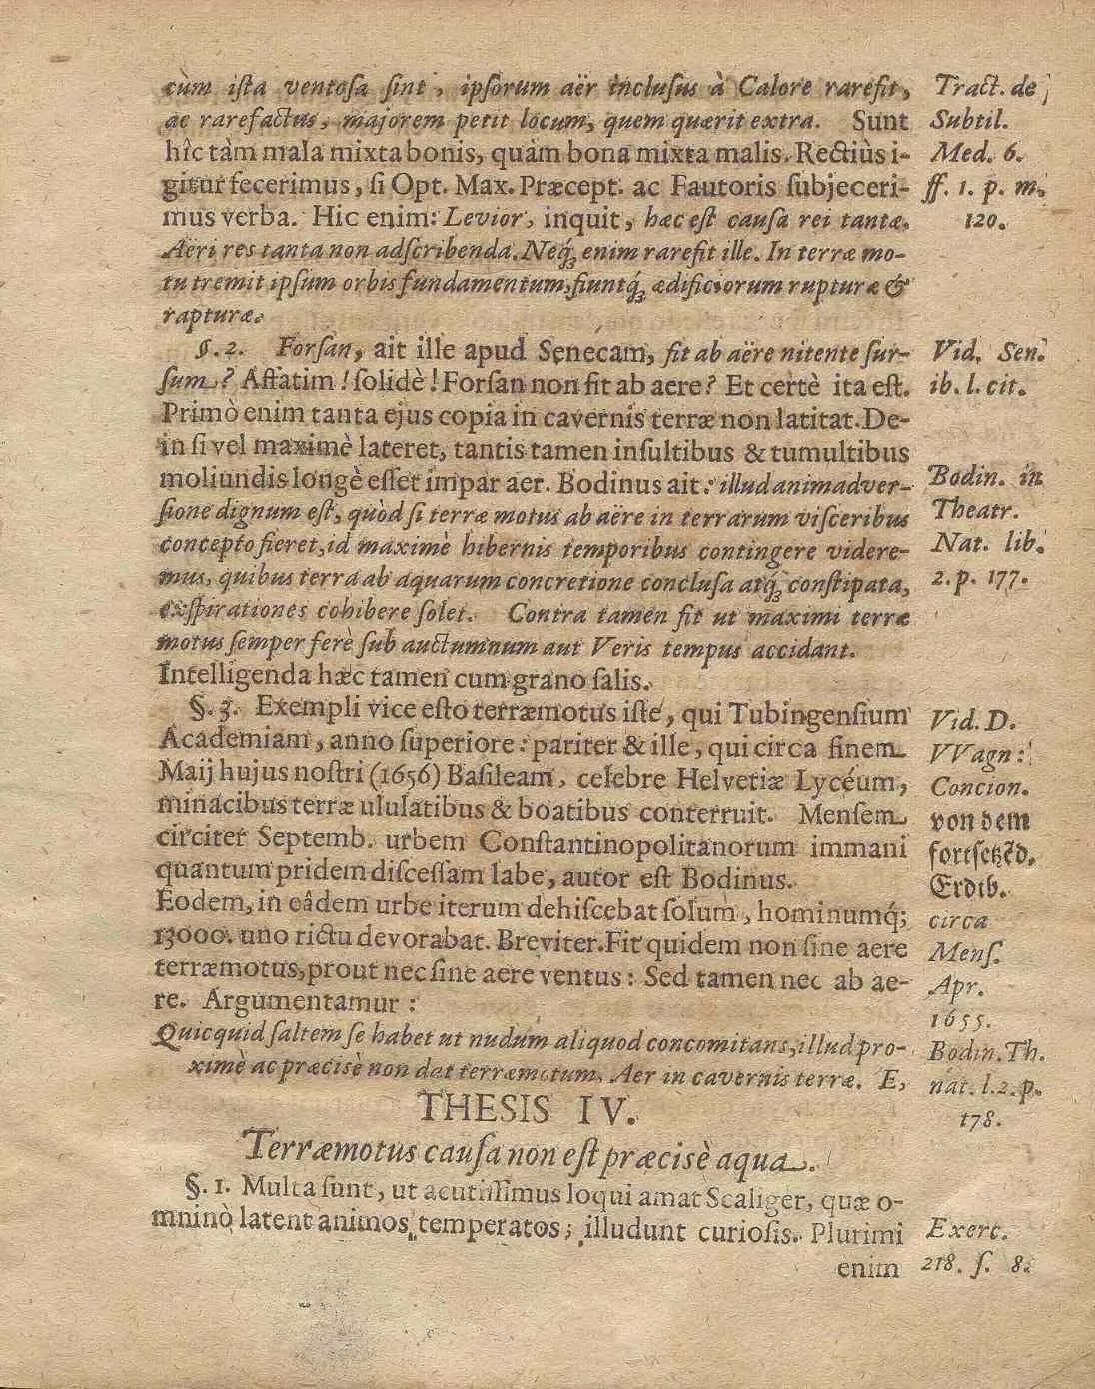 cùm iſta ventoſa ſint, ipſorum aër incluſus à Calore rarefit,
ac rarefactus, majorem petit locum, quem quærit extra. Sunt
hîc tàm mala mixta bonis, quàm bona mixta malis. Rectiùs i-
gitur fecerimus, ſi Opt. Max. Præcept. ac Fautoris ſubjeceri-
mus verba. Hic enim: Levior, inquit, hæc eſt cauſa rei tantæ.
Aëri res tanta non adſcribenda. Neq́; enim rarefit ille. In terræ mo-
tu tremit ipſum orbis fundamentum, fiuntq́; ædificiorum rupturæ &
rapturæ.
§. 2. Forſan, ait ille apud Senecam, fit ab aëre nitente ſur-
ſum? Aſtatim! ſolidè! Forſan non fit ab aere? Et certè ita eſt.
Primò enim tanta ejus copia in cavernis terræ non latitat. De-
in ſi vel maximè lateret, tantis tamen inſultibus & tumultibus
moliundis longè eſſet impar aer. Bodinus ait: illud animadver-
ſione dignum eſt, quòd ſi terræ motus ab aëre in terrarum viſceribus
concepto fieret, id maximè hibernis temporibus contingere videre-
mus, quibus terra ab aquarum concretione concluſa atq́; conſtipata,
exſpirationes cohibere ſolet. Contra tamen fit ut maximi terræ
motus ſemper ferè ſub auctumnum aut Veris tempus accidant.
Intelligenda hæc tamen cum grano ſalis.
§. 3. Exempli vice eſto terræmotus iſte, qui Tubingenſium
Academiam, anno ſuperiore: pariter & ille, qui circa finem
Maij hujus noſtri (1656) Baſileam, celebre Helvetiæ Lycéum,
minacibus terræ ululatibus & boatibus conterruit. Menſem
circiter Septemb. urbem Conſtantinopolitanorum immani
quantum pridem diſceſſam labe, autor eſt Bodinus.
Eodem, in eâdem urbe iterum dehiſcebat ſolum, hominumq́;
13000. uno rictu devorabat. Breviter. Fit quidem non ſine aere
terræmotus, prout nec ſine aere ventus: Sed tamen nec ab ae-
re. Argumentamur:
Quicquid ſaltem ſe habet ut nudum aliquod concomitans, illud pro-
ximè ac præcisè non dat terræmotum. Aer in cavernis terræ. E,
THESIS IV.
Terræmotus cauſa non eſt præcisè aqua.
§. 1. Multa ſunt, ut acutiſſimus loqui amat Scaliger, quæ o-
mninò latent animos temperatos; illudunt curioſis. Plurimi
enim
Tract. de
Subtil.
Med. 6.
ff. 1. p. m.
120.
Vid. Sen.
ib. l. cit.
Bodin. in
Theatr.
Nat. lib.
2. p. 177.
Vid. D.
VVagn:
Concion.
von dem
fortſetzēd.
Erdib.
circa
Menſ.
Apr.
1655.
Bodin. Th.
nat. l. 2. p.
178.
Exerc.
218. ſ. 8.